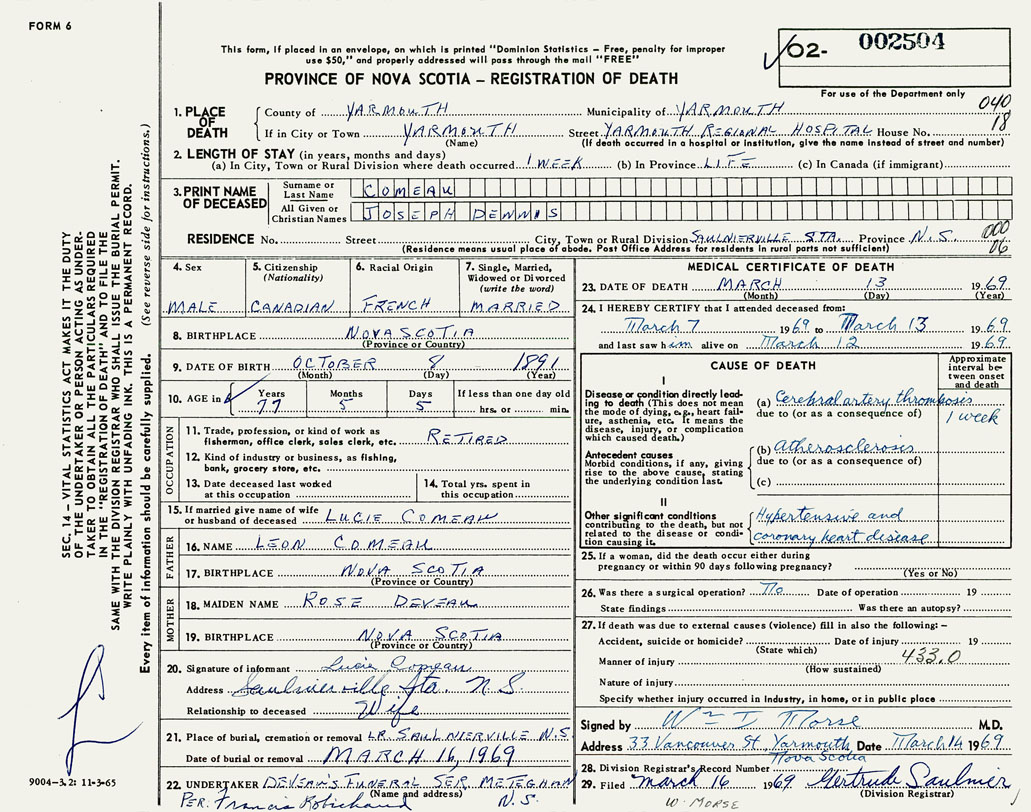 FORM 6
This form, if placed in an envelope, on which is printed "Dominion Statistics – Free, penalty for improper
use $50," and properly addressed will pass through the mail "FREE"
PROVINCE OF NOVA SCOTIA – REGISTRATION OF DEATH
02- 002504
For use of the Department only
SEC. 14 – VITAL STATISTICS ACT MAKES IT THE DUTY
OF THE UNDERTAKER OR PERSON ACTING AS UNDER-
TAKER TO OBTAIN ALL THE PARTICULARS REQUIRED
IN THE "REGISTRATION OF DEATH" AND TO FILE THE
SAME WITH THE DIVISION REGISTRAR WHO SHALL ISSUE THE BURIAL PERMIT.
WRITE PLAINLY WITH UNFADING INK. THIS IS A PERMANENT RECORD.
Every item of information should be carefully supplied. (See reverse side for instructions.)
9004–3.2: 11-3-65
1. PLACE OF DEATH
County of YARMOUTH Municipality of YARMOUTH 040
If in City or Town YARMOUTH Street YARMOUTH REGIONAL HOSPITAL House No. 18
(Name) (If death occurred in a hospital or institution, give the name instead of street and number)
2. LENGTH OF STAY (in years, months and days)
(a) In City, Town or Rural Division where death occurred 1 WEEK (b) In Province LIFE (c) In Canada (if immigrant)
3. PRINT NAME OF DECEASED
Surname or Last Name COMEAU
All Given or Christian Names JOSEPH DENNIS
RESIDENCE No. Street City, Town or Rural Division SAULNIERVILLE STA. Province N.S. 000
06
(Residence means usual place of abode. Post Office Address for residents in rural parts not sufficient)
4. Sex MALE
5. Citizenship (Nationality) CANADIAN
6. Racial Origin FRENCH
7. Single, Married, Widowed or Divorced (write the word) MARRIED
8. BIRTHPLACE NOVA SCOTIA
(Province or Country)
9. DATE OF BIRTH OCTOBER 8 1891
(Month) (Day) (Year)
10. AGE in Years 77 Months 5 Days 5 If less than one day old hrs. or min.
OCCUPATION
11. Trade, profession or kind of work as
fisherman, office clerk, sales clerk, etc. RETIRED
12. Kind of industry or business, as fishing,
bank, grocery store, etc.
13. Date deceased last worked
at this occupation
14. Total yrs. spent in
this occupation
15. If married give name of wife
or husband of deceased LUCIE COMEAU
FATHER
16. NAME LEON COMEAU
17. BIRTHPLACE NOVA SCOTIA
(Province or Country)
MOTHER
18. MAIDEN NAME ROSE DEVEAU
19. BIRTHPLACE NOVA SCOTIA
(Province or Country)
20. Signature of informant Lucie Comeau
Address Saulnierville Sta. N.S.
Relationship to deceased Wife
21. Place of burial, cremation or removal LR. SAULNIERVILLE N.S.
Date of burial or removal MARCH 16, 1969
22. UNDERTAKER DEVEAU'S FUNERAL SER. METEGHAN
(Name and address) N.S.
PER. Francis Robichaud
MEDICAL CERTIFICATE OF DEATH
23. DATE OF DEATH MARCH 13 1969
(Month) (Day) (Year)
24. I HEREBY CERTIFY that I attended deceased from:
March 7 1969 to March 13 1969
and last saw him alive on March 12 1969
CAUSE OF DEATH
Approximate interval between onset and death
I
Disease or condition directly lead-
ing to death (This does not mean
the mode of dying, e.g., heart fail-
ure, asthenia, etc. It means the
disease, injury, or complication
which caused death.)
(a) Cerebral artery thrombosis
due to (or as a consequence of) 1 week
Antecedent causes
Morbid conditions, if any, giving
rise to the above cause, stating
the underlying condition last.
(b) Atherosclerosis
due to (or as a consequence of)
(c)
II
Other significant conditions
contributing to the death, but not
related to the disease or condi-
tion causing it.
Hypertensive and
coronary heart disease
25. If a woman, did the death occur either during
pregnancy or within 90 days following pregnancy?
(Yes or No)
26. Was there a surgical operation? No Date of operation 19
State findings Was there an autopsy?
27. If death was due to external causes (violence) fill in also the following:–
Accident, suicide or homicide? Date of injury 19
(State which)
Manner of injury 433.0
(How sustained)
Nature of injury
Specify whether injury occurred in industry, in home, or in public place
Signed by Wm I Morse M.D.
Address 33 Vancouver St, Yarmouth Date March 14 1969
Nova Scotia
28. Division Registrar's Record Number
29. Filed March 16 1969 Gertrude Saulnier
(Division Registrar)
W. MORSE